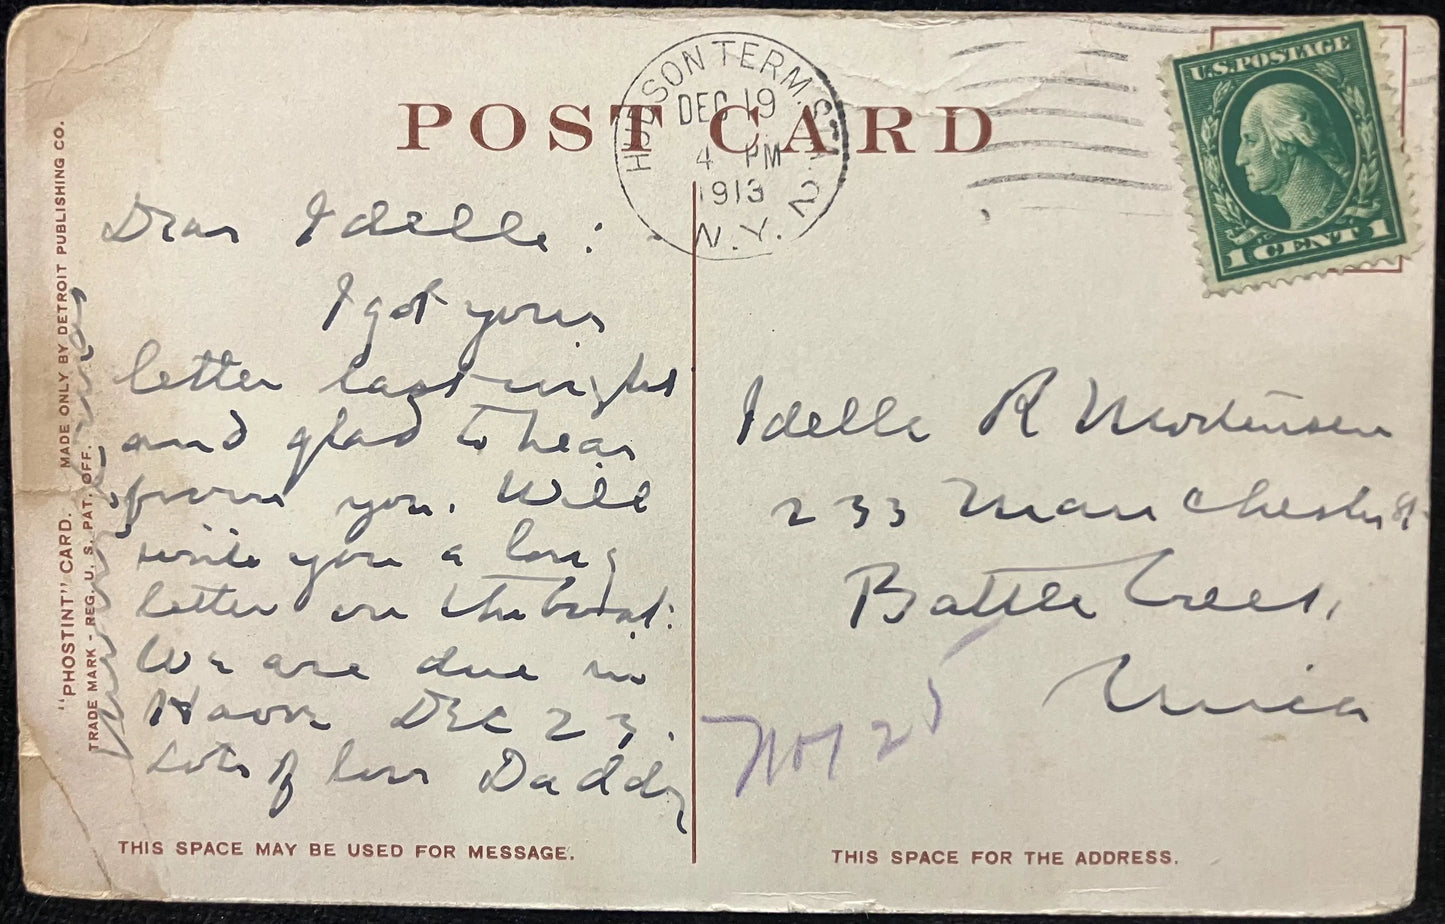 POST CARD
HUDSON TERM. STA. 2
DEC 19
4 PM
1913
N.Y.
U.S. POSTAGE
1 CENT 1
Dear Idelle:
I got your
letter last night
and glad to hear
from you. Will
write you a long
letter on the boat.
We are due in
Havre DEC 23.
Lots of love Daddy
Idelle R Mortensen
233 Manchester St
Battle Creek,
Mich
"PHOSTINT" CARD. MADE ONLY BY DETROIT PUBLISHING CO.
TRADE MARK - REG. U. S. PAT. OFF.
THIS SPACE MAY BE USED FOR MESSAGE.
THIS SPACE FOR THE ADDRESS.